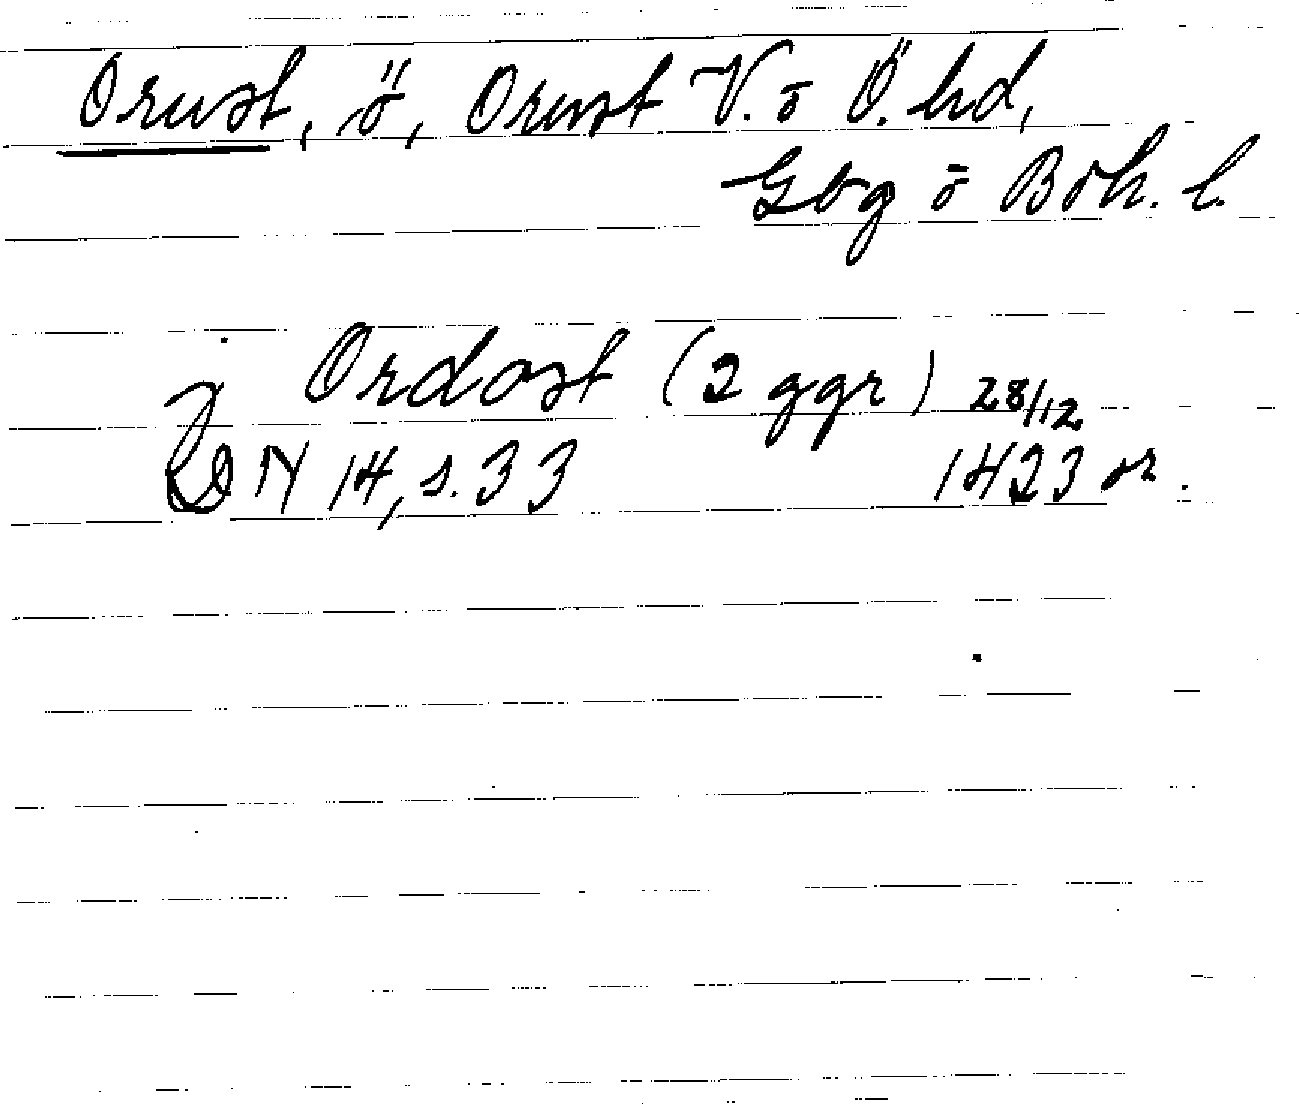 Orust, ö, Orust V. o Ö. hd,
Gbg o Boh. l.
Ordost (2 ggr) 28/12
DN 14, s. 33 1423 or.